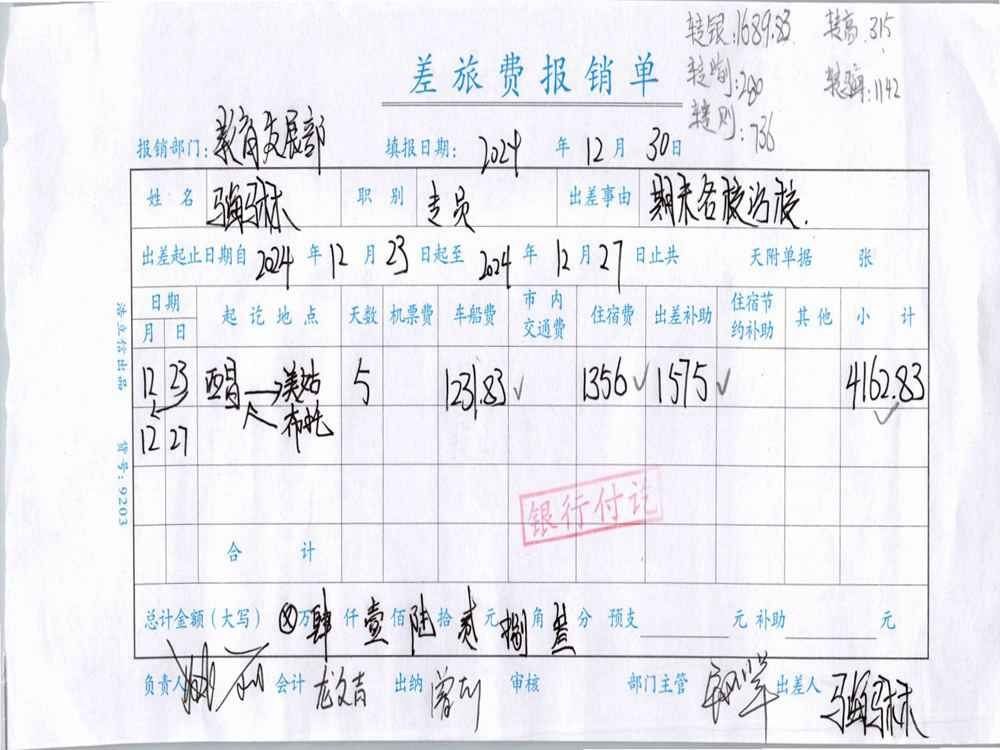 转银:1689.83 转高.315
转昫:280 转骈:1142
转则:736
差旅费报销单
报销部门:教育发展部 填报日期: 2024 年 12 月 30 日
姓名 职别 专员 出差事由 期末各校访校.
出差起止日期自 2024 年 12 月 23 日起至 2024 年 12 月 27 日止共 天附单据 张
日期 起讫地点 天数 机票费 车船费 市内交通费 住宿费 出差补助 住宿节约补助 其他 小计
月 日
12 23 西昌→美姑 5 1231.83 1356 1575 4162.83
12 27 布拖
银行付讫
合计
总计金额(大写) ⊗万肆仟壹佰陆拾贰元捌角叁分 预支 元 补助 元
负责人 会计 龙文吉 出纳 审核 部门主管 出差人
浩立信出品 货号:9203